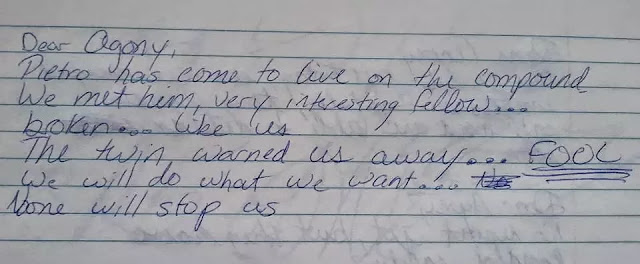 Dear Agony,
Pietro has come to live on the compound
We met him, very interesting fellow...
broken... like us
The twin warned us away... FOOL
We will do what we want...
None will stop us